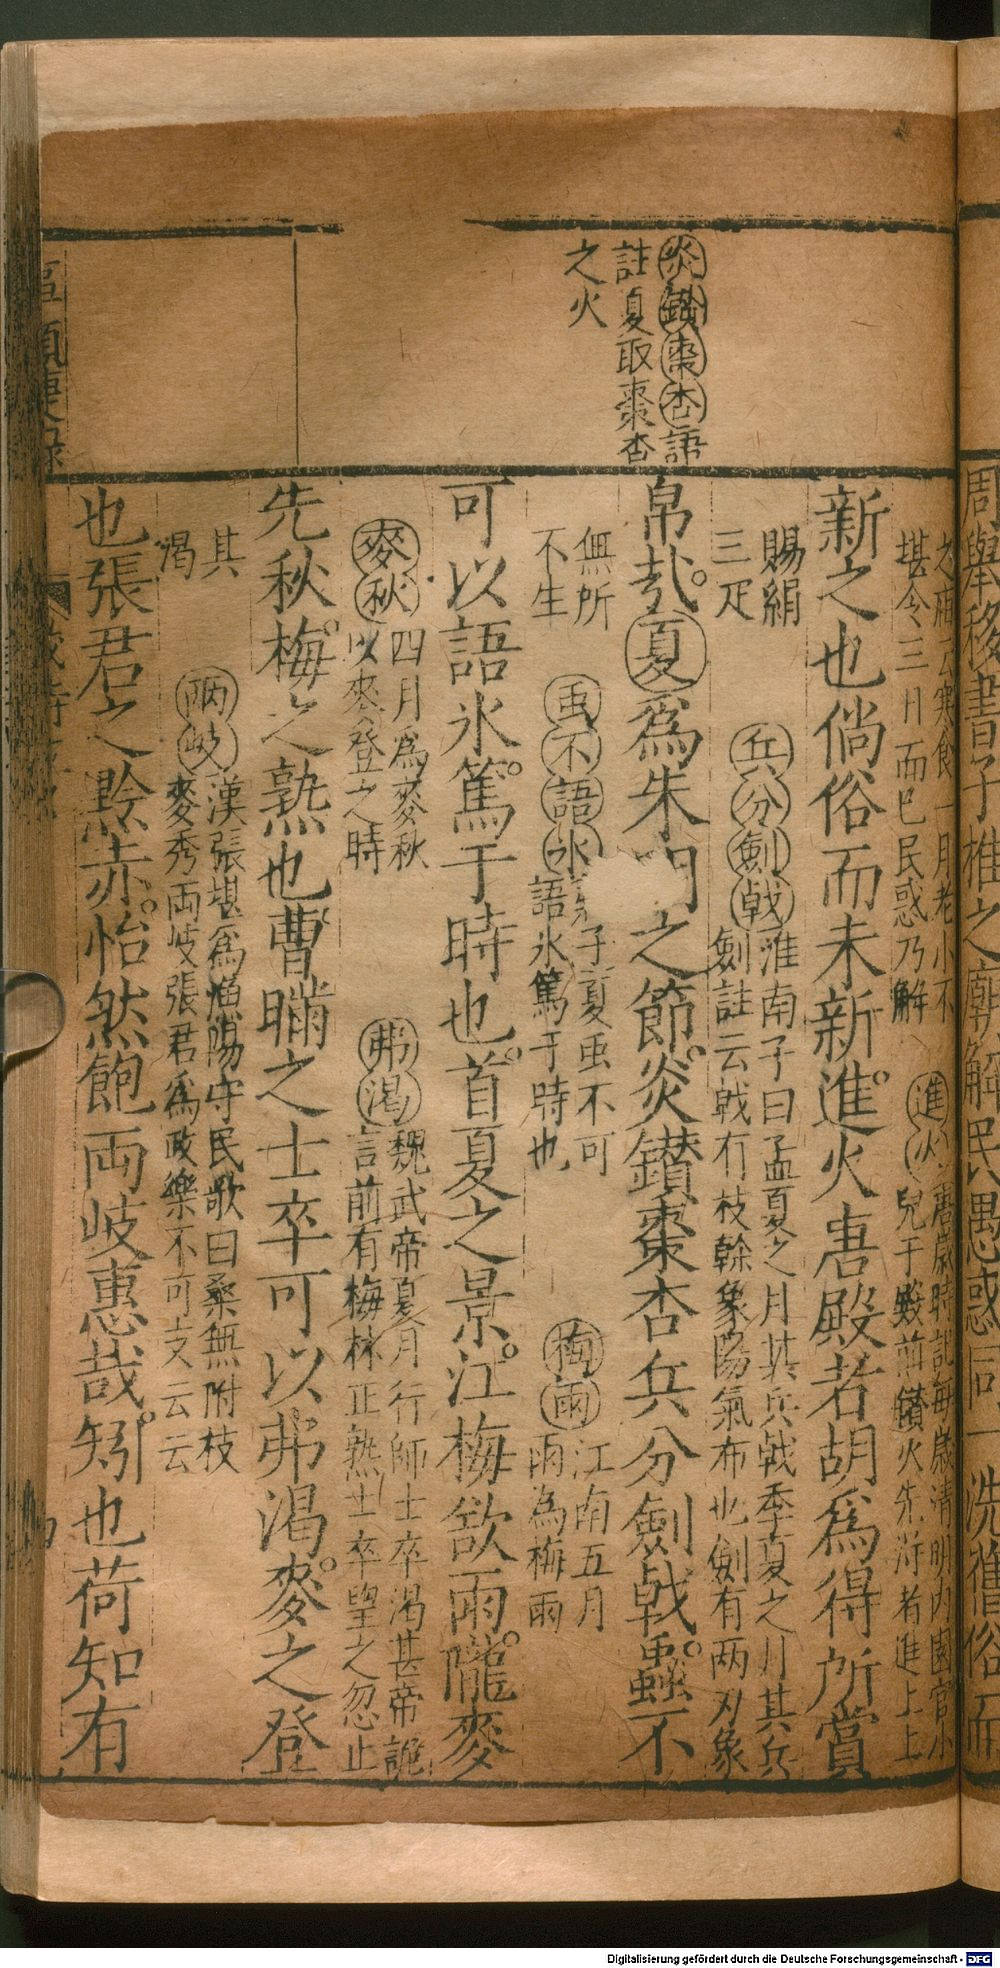 周舉移書子推之廟解民愚惑同一洗舊俗而
炎鑚棗杏語
註夏取棗杏
之火
之廟云寒食一月老小不
堪今三日而已民惑乃解
進火唐歲時記每歲清明內園官小
兒于殿前鑚火先淂者進上上
新之也倘俗而未新進火唐殿者胡爲得所賞
賜絹
三疋
兵分劍戟淮南子曰孟夏之月其兵戟季夏之月其兵
劍註云戟有枝幹象陽氣布也劍有两刃象
帛㢤夏爲朱之節炎鑚棗杏兵分劍戟蟲不
無所
不生
虫不語氷子夏虫不可
語氷篤于時也
梅雨江南五月
雨為梅雨
可以語氷篤于時也首夏之景江梅欲雨隴麥
麥秋四月為麥秋
以麥登之時
弗渴魏武帝夏月行師士卒渴甚帝詭
言前有梅林正熟士卒望之忽止
先秋梅之熟也曹瞞之士卒可以弗渴麥之登
其
渴
兩岐漢張堪為漁陽守民歌曰桑無附枝
麥秀兩岐張君為政樂不可支云云
也張君之黔赤怡然飽兩岐惠哉矧也荷知有
Digitalisierung gefördert durch die Deutsche Forschungsgemeinschaft - DFG